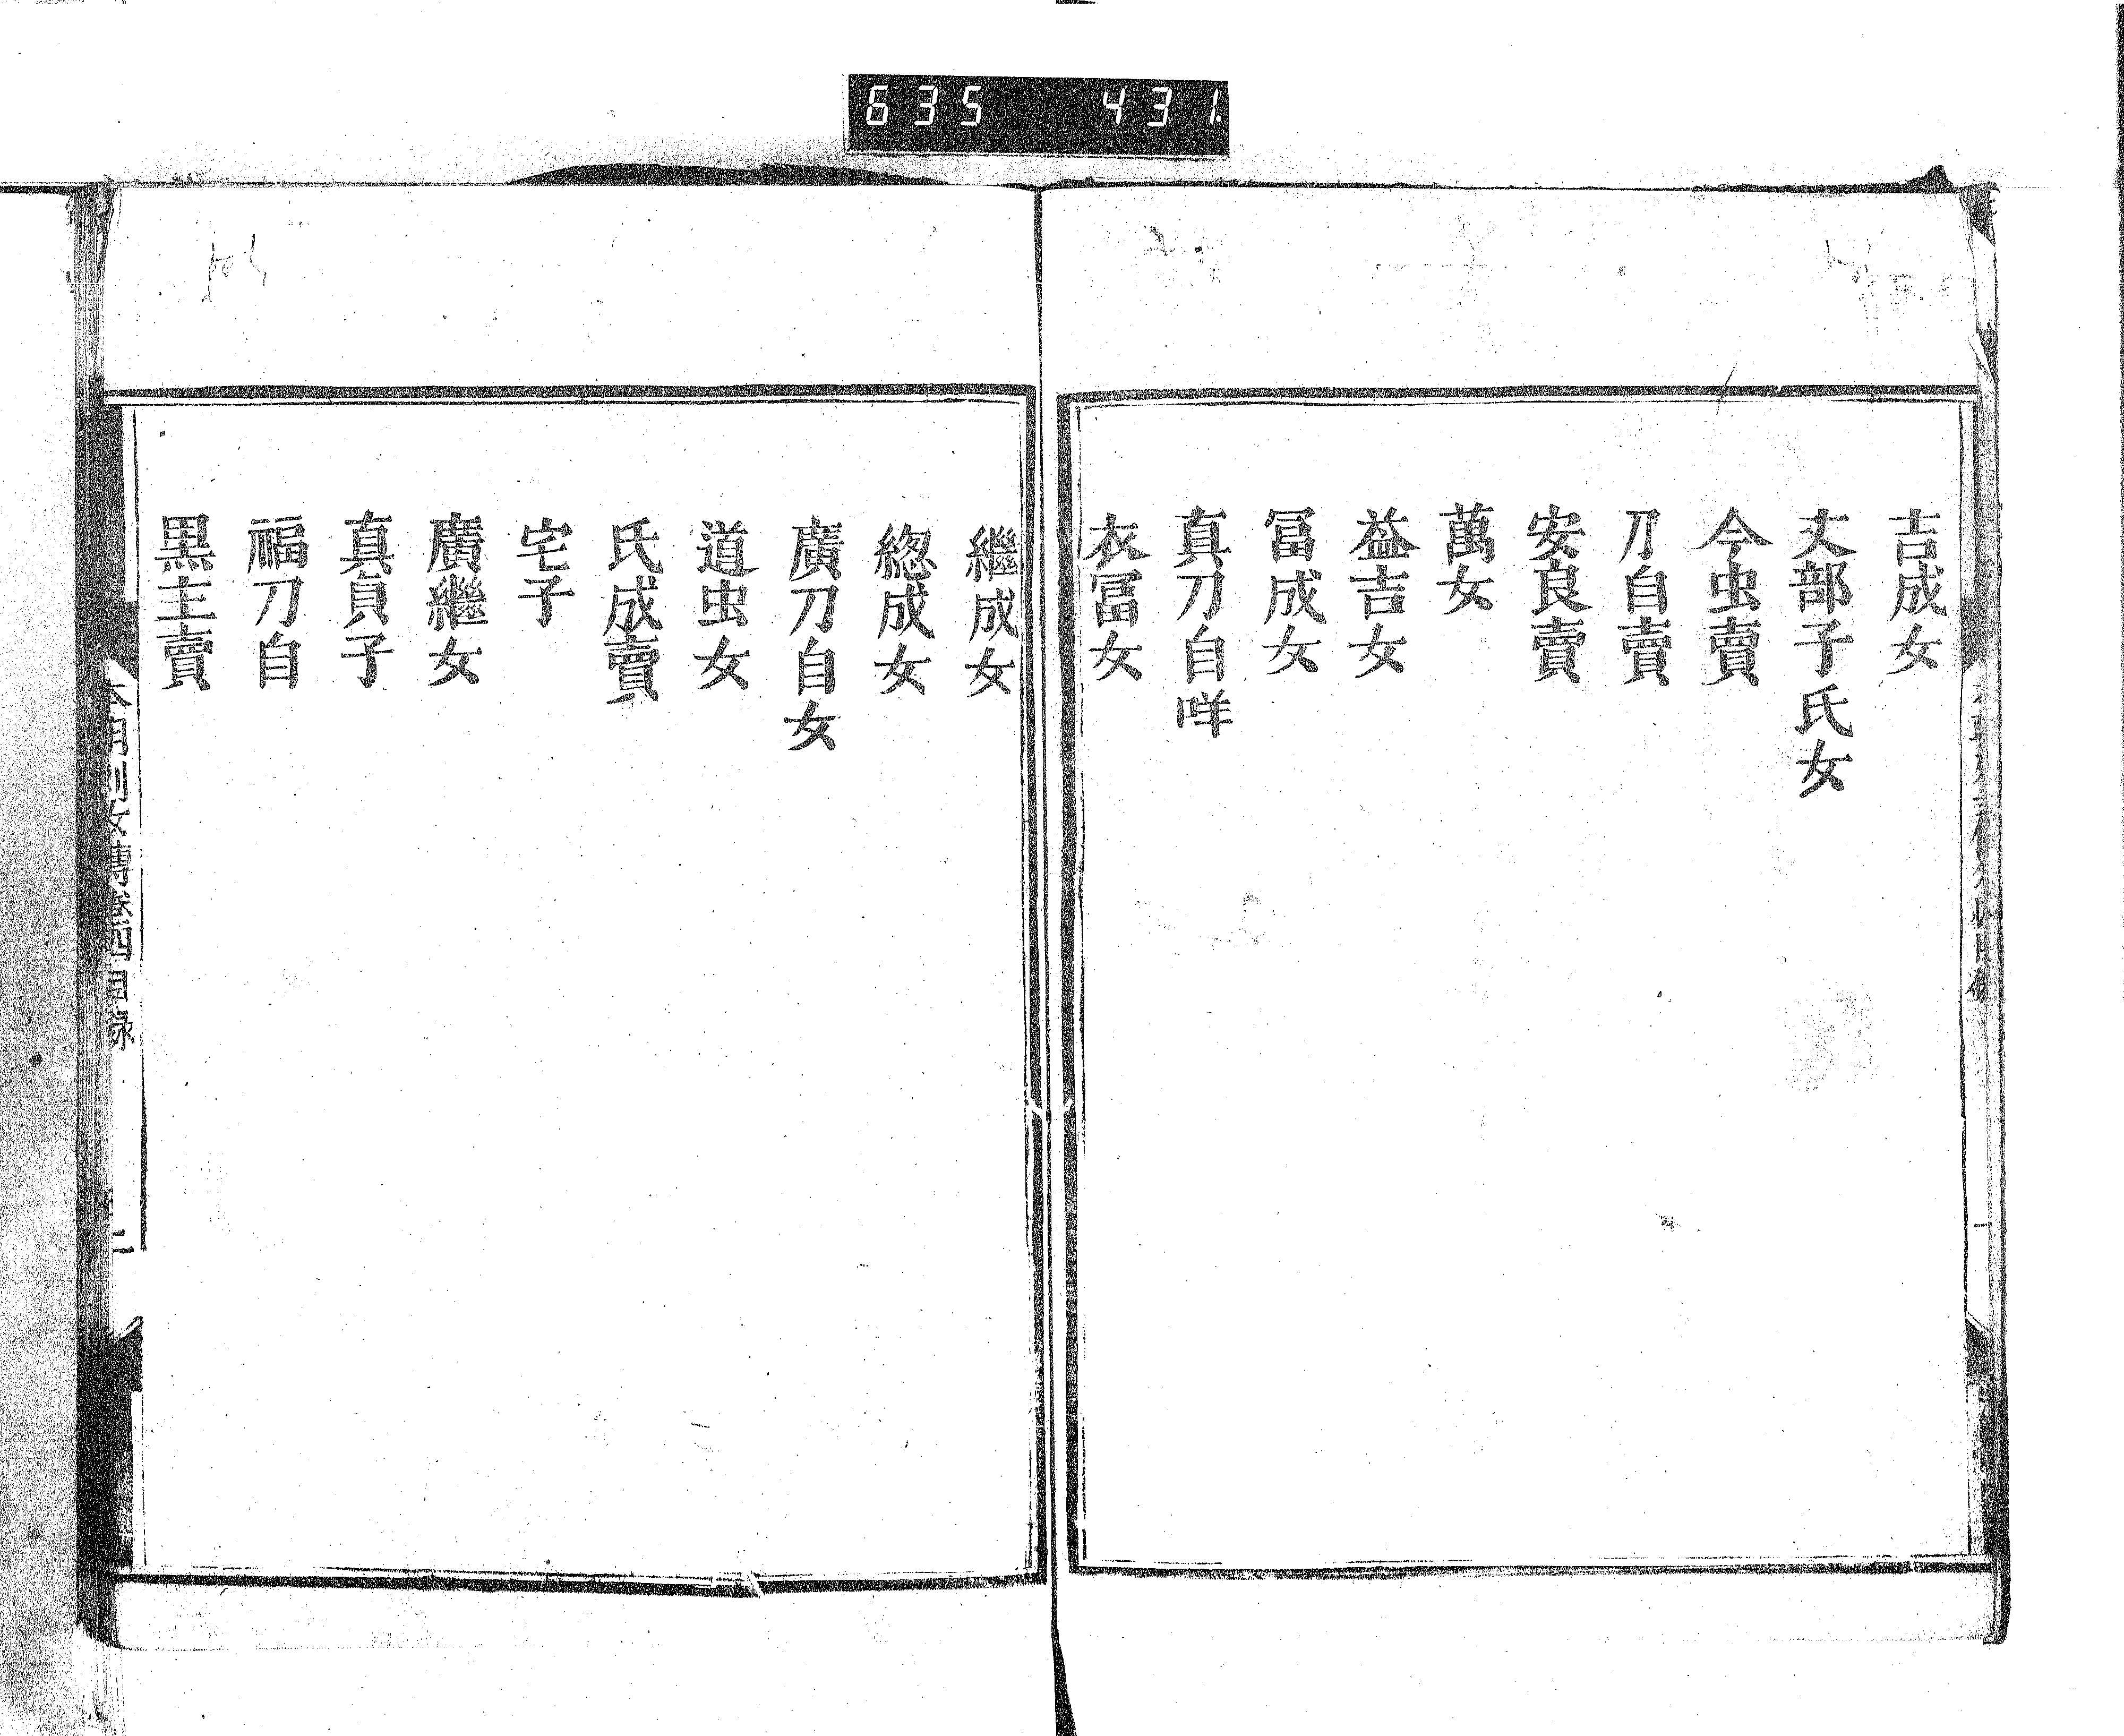 635 431
吉成女
丈部子氏女
今虫賣
刀自賣
安良賣
萬女
益吉女
冨成女
真刀自咩
衣冨女
繼成女
緫成女
廣刀自女
道虫女
氏成賣
宅子
廣繼女
真貞子
福刀自
黒主賣